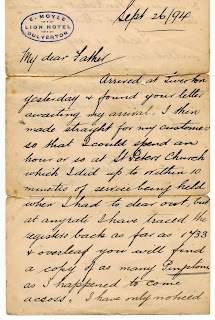 E. MOYLE
LION HOTEL
DULVERTON
Sept 26/94
My dear Father
Arrived at Tiverton
yesterday & found your letter
awaiting my arrival. I then
made straight for my customer
so that I could spend an
hour or so at St Peters Church
which I did up to within 10
minutes of service being held
when I had to clear out, but
at anyrate I have traced the
registers back as far as 1733
& overleaf you will find
a copy of as many
as I happened to come
across. I have only noticed